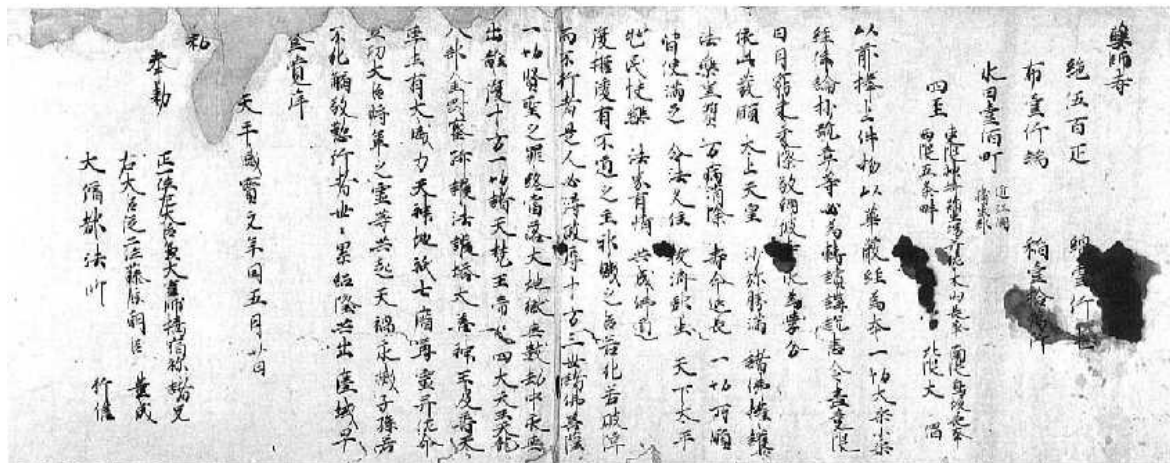 藥師寺
絁伍百疋 綿壹仟屯
布壹仟端 稲壹拾萬
水田壹佰町 近江国
四至
以前捧上件物以華厳経為本一切大乗小乗
経律論抄疏章等必為轉讀講説悉令盡竟限
日月窮未来際敬納彼
依此發願 太上天皇沙弥勝滿 諸佛擁護
法藥薫質 万病消除 壽命延長 一切所願
皆使満足 令法久住 抜濟群生 天下太平
兆民快樂 法界有情 共成佛道
而不行者是人必得破辱十方三世諸佛菩薩
一切賢聖之罪終當落大地獄無數劫中永無
出離 十方一切諸天梵王帝釈四大天王天龍
八部金剛密跡護法護塔大善神王及普天
率土有大威力天神地祇七廟尊霊并佐命
立功大臣将軍之霊等共起大禍永滅子孫若
不犯觸敬懃行者世々累福終共出塵域早
登覚岸
天平感寶元年閏五月廿日
勅
奉勅
正一位左大臣兼大宰帥橘宿祢諸兄
右大臣従二位藤原朝臣豊成
大僧都法師 行信